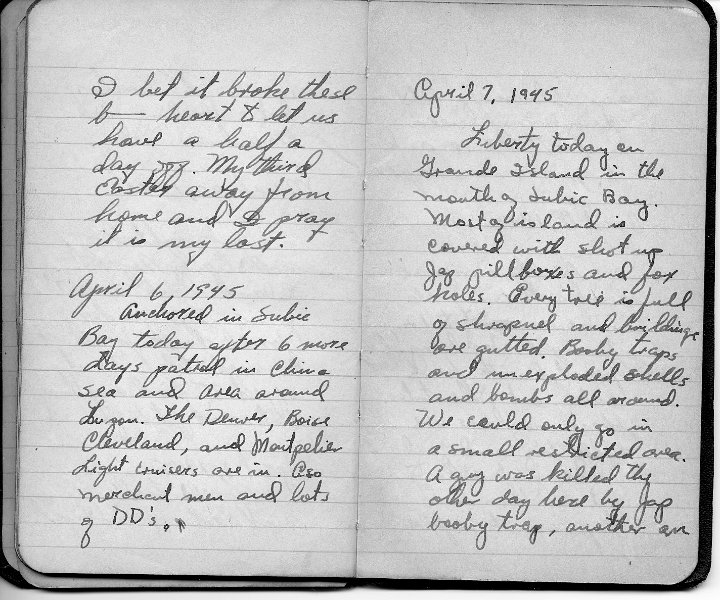 I bet it broke these
b— heart to let us
have a half a
day off. My third
Easter away from
home and I pray
it is my last.
April 6, 1945
Anchored in Subic
Bay today after 6 more
days patrol in China
sea and area around
Luzon. The Denver, Boise
Cleveland, and Montpelier
Light cruisers are in. Also
merchant men and lots
of DD's.
April 7, 1945
Liberty today on
Grande Island in the
mouth of Subic Bay.
Most of island is
covered with shot up
Jap pillboxes and fox
holes. Every tree is full
of shrapnel and buildings
are gutted. Booby traps
and unexploded shells
and bombs all around.
We could only go in
a small restricted area.
A guy was killed the
other day here by Jap
booby trap, another on